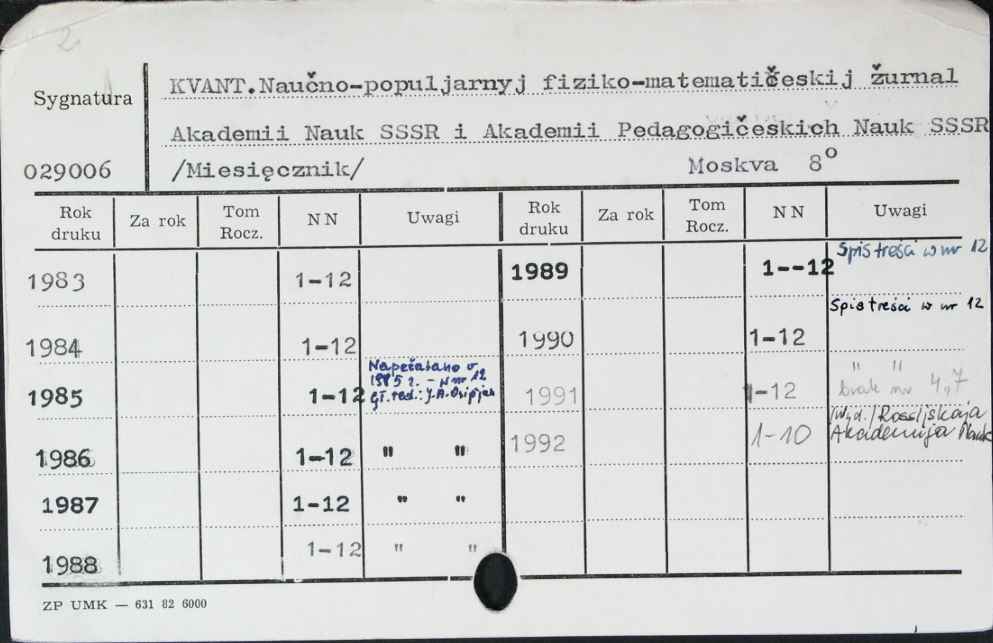 2.
KVANT.Naučno-populjarnyj fiziko-matematičeskij žurnal
Sygnatura
Akademii Nauk SSSR i Akademii Pedagogičeskich Nauk SSSR
029006 /Miesięcznik/ Moskva 8°
Rok druku Za rok Tom Rocz. NN Uwagi Rok druku Za rok Tom Rocz. NN Uwagi
1983 1-12 1989 1--12 Spis treści w nr 12
1984 1-12 1990 1-12 Spis treści w nr 12
1985 1-12 Napečatano v
1985 r. - w nr 12
gł. red.: J.A. Osipjan
1991 1-12 " "
brak nr 4,7
1986 1-12 " " 1992 1-10 /Wyd./ Rossijskaja
Akademija Nauk
1987 1-12 " "
1988 1-12 " "
ZP UMK — 631 82 6000